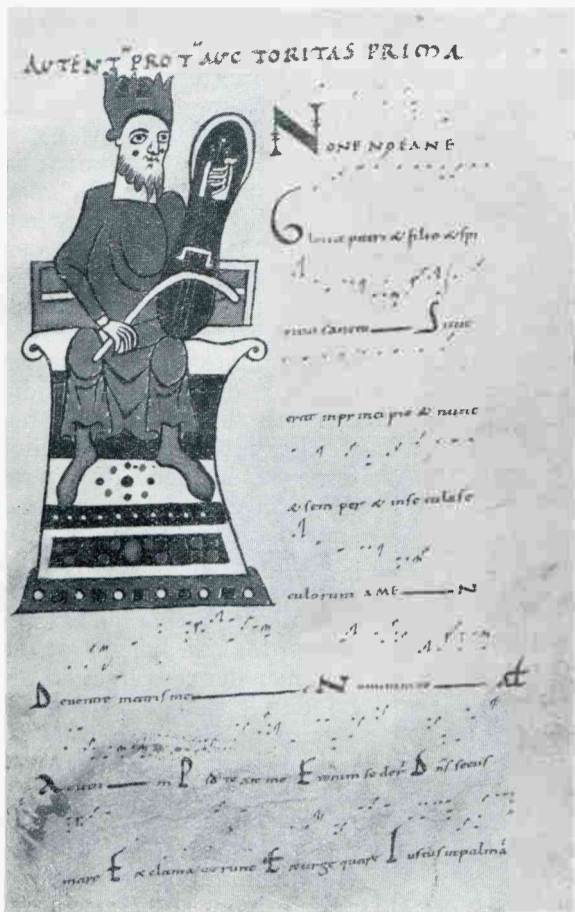 AUTENTꝰ PROTꝰ AUCTORITAS PRIMA
NONENOEANE
Gloria patri & filio & spi
ritui sancto Sicut
erat inprincipio & nunc
& semper & insecula se
culorum AMEN
Deventre matris me e N
A m P E D̄ secus
mare E xclamaverunt E xurge quare I ustus utpalma